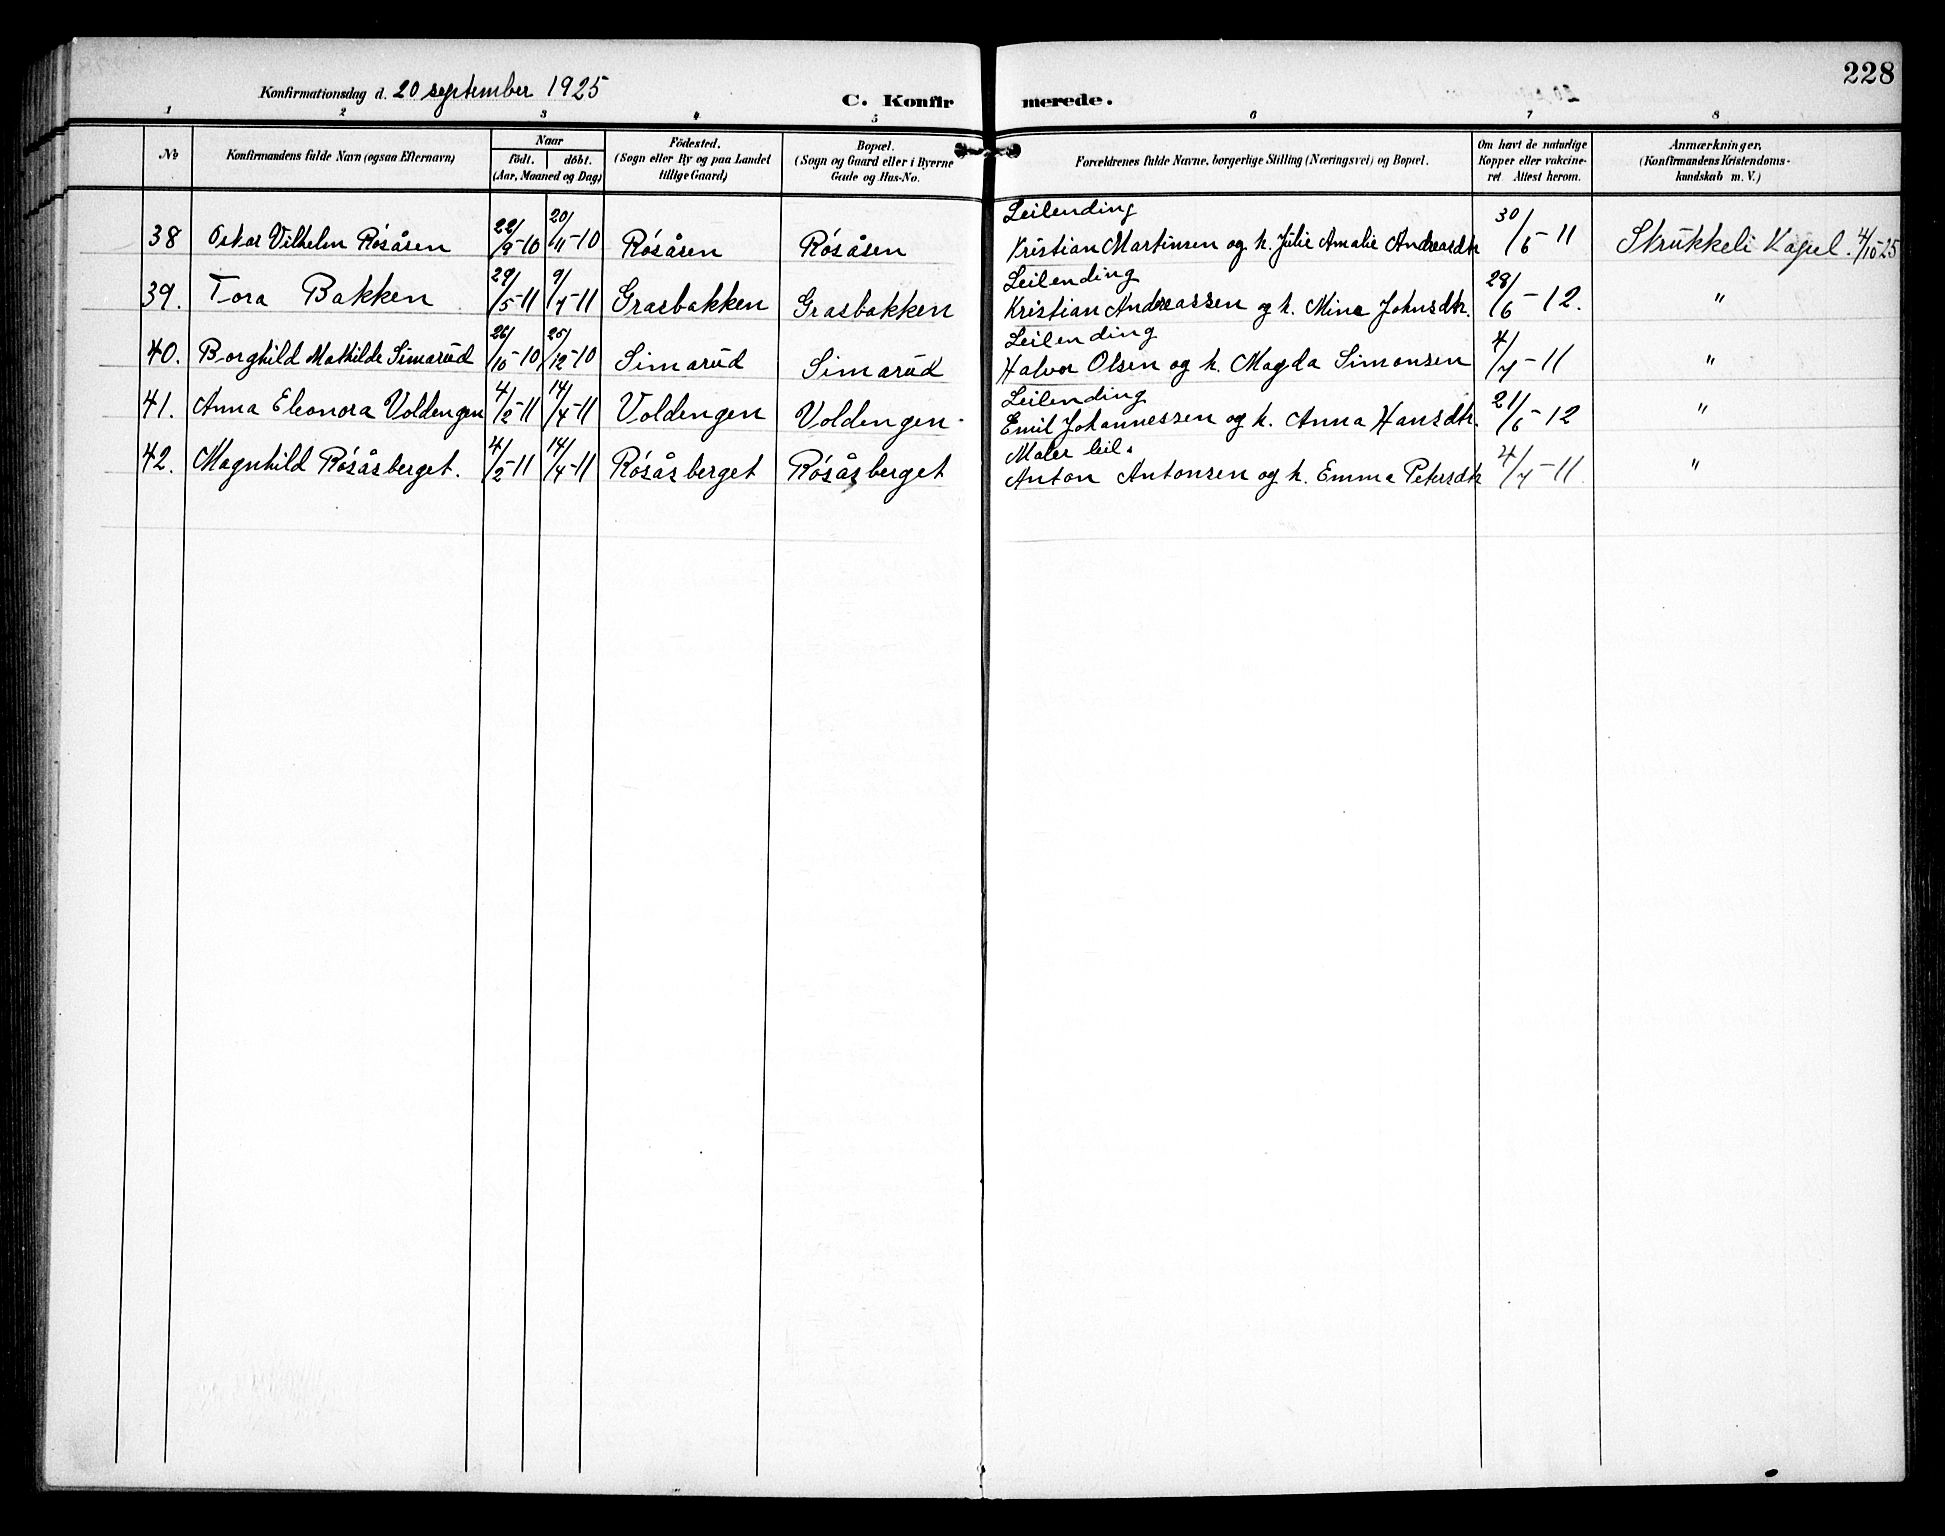 228
Konfirmationsdag d. 20 september 1925
C. Konfirmerede.
1 2 3 4 5 6 7 8
No
Konfirmandens fulde Navn (ogsaa Efternavn)
Naar
födt. döbt.
(Aar, Maaned og Dag)
Födested.
(Sogn eller By og paa Landet
tillige Gaard)
Bopæl.
(Sogn og Gaard eller i Byerne
Gade og Hus-No.
Forældrenes fulde Navne, borgerlige Stilling (Næringsvei) og Bopæl.
Om havt de naturlige
Kopper eller vakcine-
ret Attest herom.
Anmærkninger.
(Konfirmandens Kristendoms-
kundskab m. V.)
Leilending
38 Oskar Vilhelm Rósåsen 22/9-10 20/11-10 Rósåsen Rósåsen Kristian Martinsen og h. Julie Amalie Andreasdtr 30/6-11 Strukkeli Kapel. 4/10-25
Leilending
39. Tora Bakken 29/5-11 9/7-11 Grasbakken Grasbakken Kristian Andreassen og h. Mina Johnsdtr. 28/6-12. "
Leilending
40. Borghild Mathilde Simarud 26/10-10 25/12-10 Simarud Simarud Halvor Olsen og h. Magda Simonsen 4/7-11 "
Leilending
41. Anna Eleonora Voldengen 4/2-11 14/4-11 Voldengen Voldengen Emil Johannessen og h. Anna Hansdtr. 21/6-12 "
Maler leil.
42. Magnhild Rósåsberget. 4/2-11 14/4-11 Rósåsberget Rósåsberget Anton Antonsen og h. Emma Petersdtr 4/7-11 "